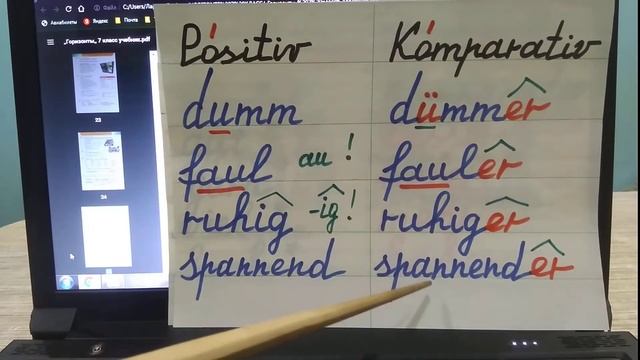 C:/Users/Лар
Авиабилеты Яндекс Почта
_Горизонты_ 7 класс учебник.pdf
23
24
Positiv Komparativ
dumm dümmer
faul au! fauler
ruhig -ig! ruhiger
spannend spannender